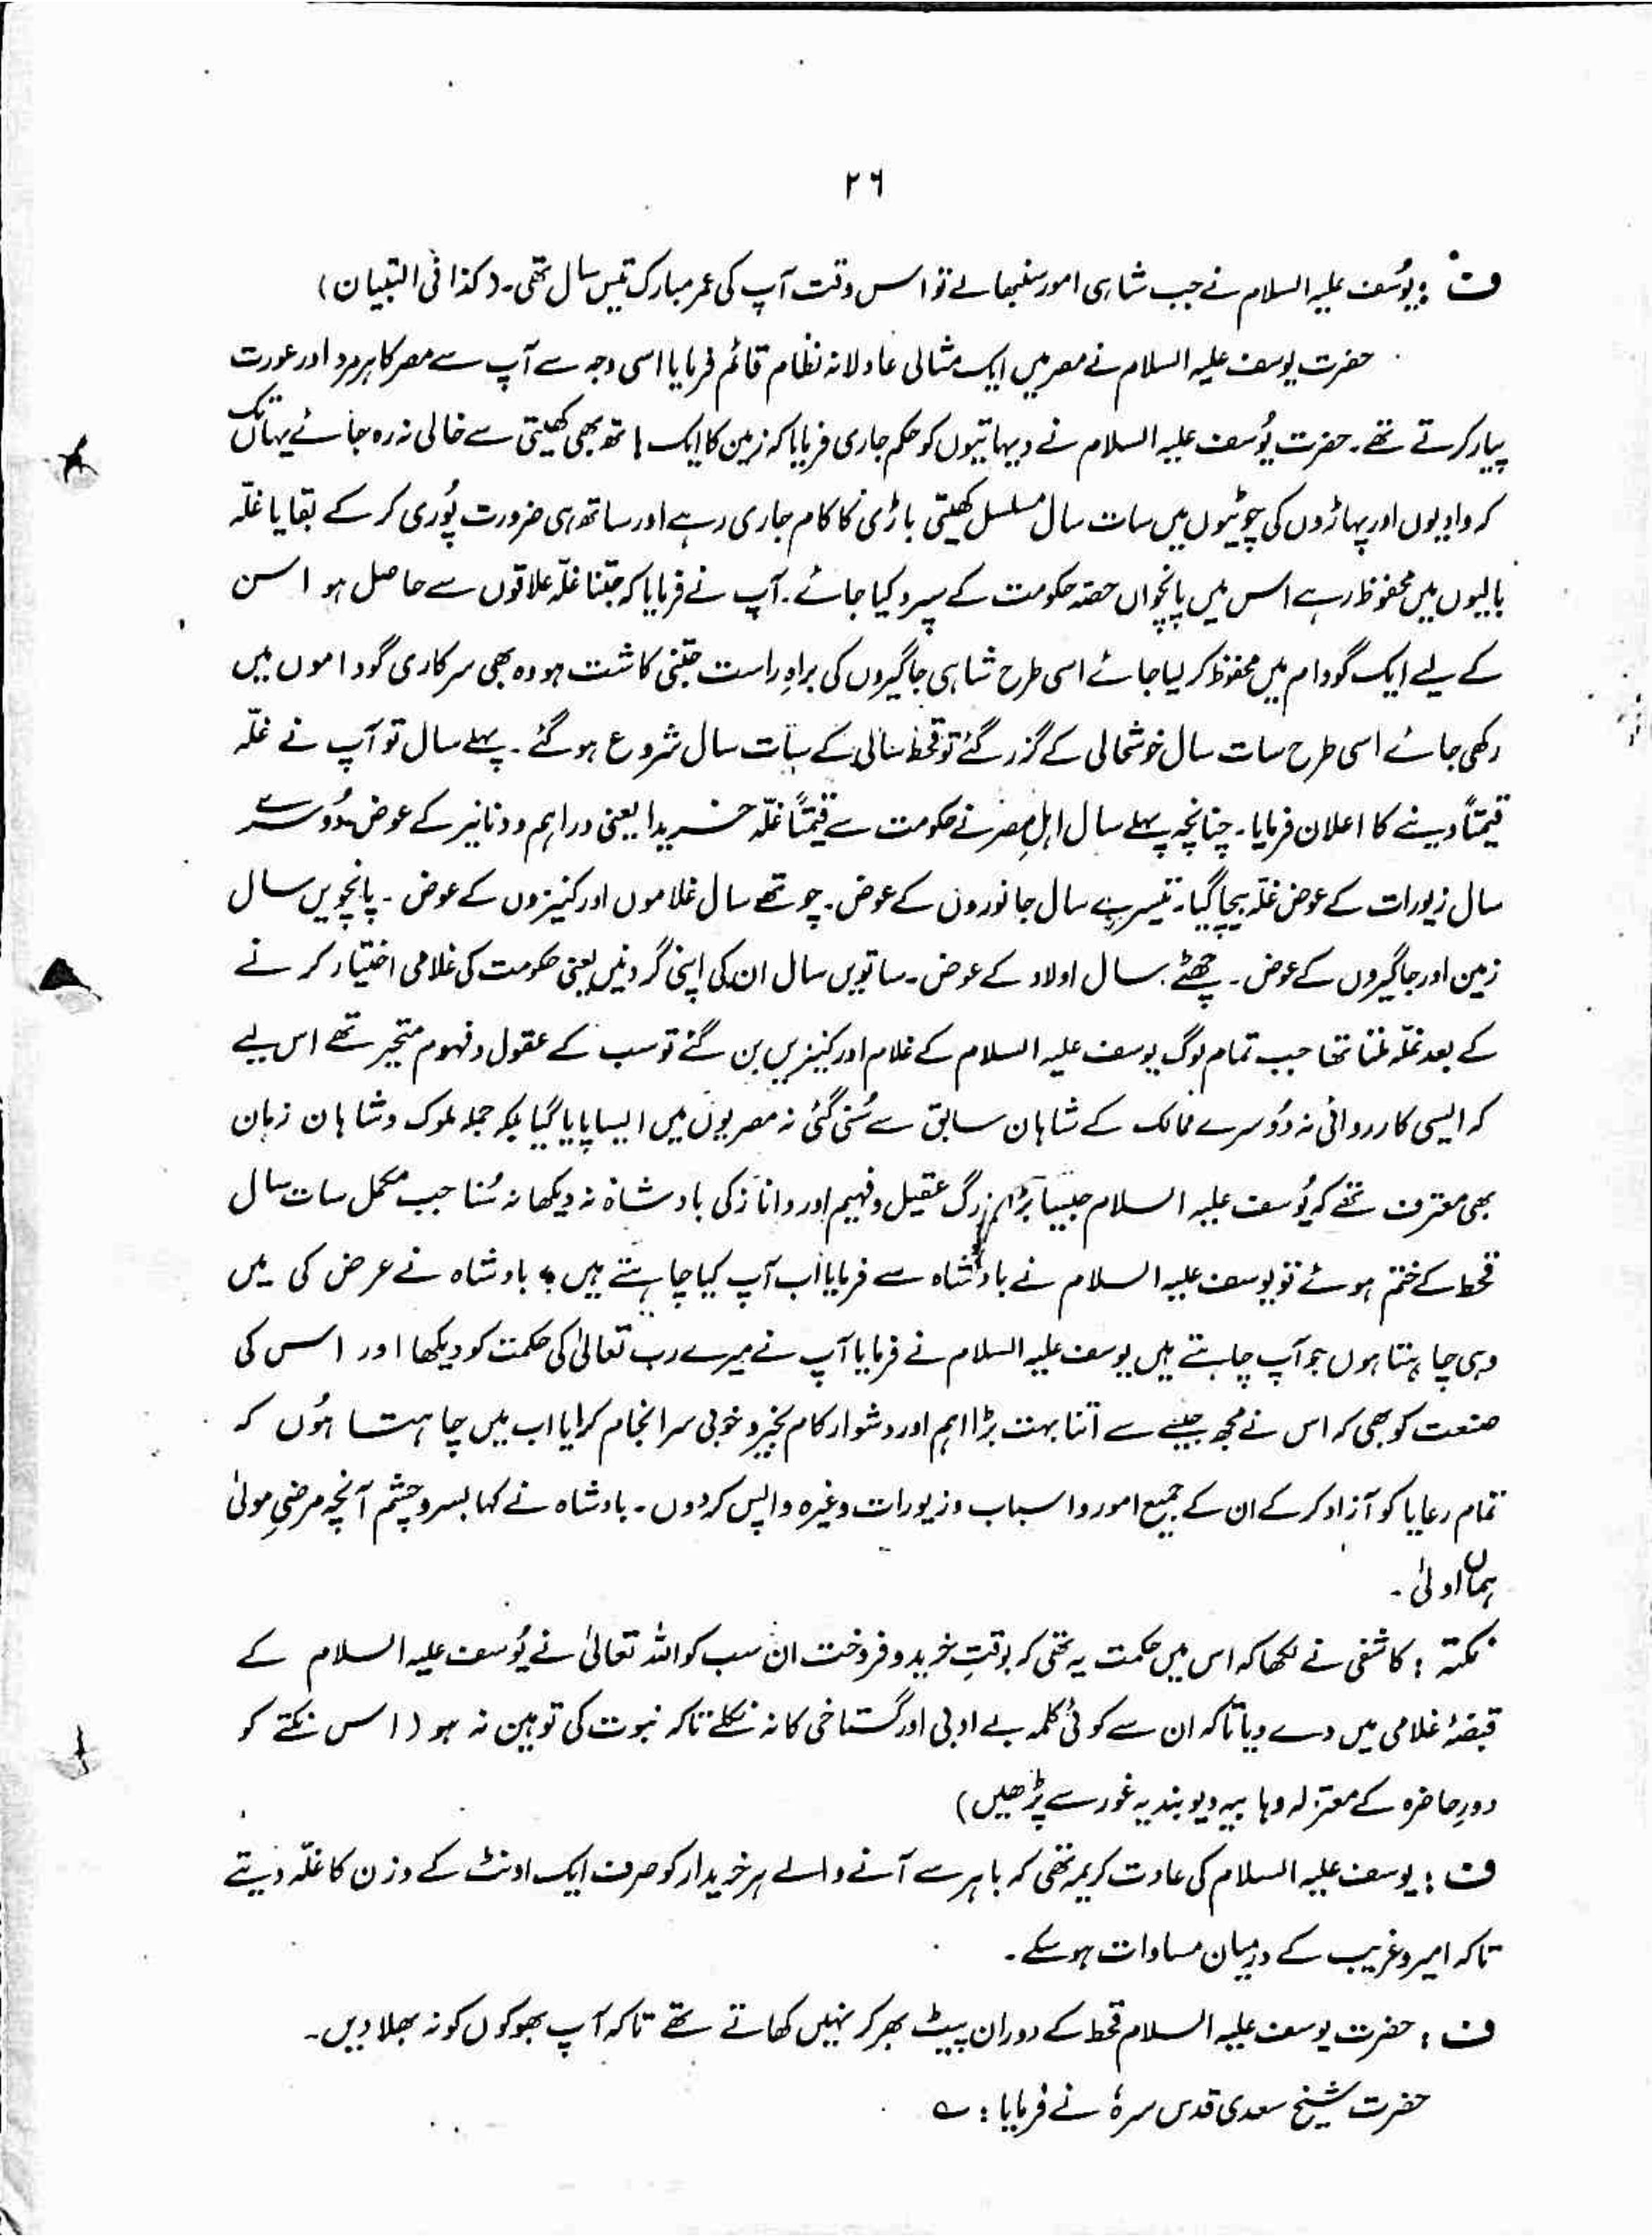 ۲۶
ف : یُوسف علیہ السلام نے جب شاہی امور سنبھالے تو اس وقت آپ کی عمر مبارک تیس سال تھی۔ (کذا فی التبیان)
حضرت یوسف علیہ السلام نے مصر میں ایک مثالی عادلانہ نظام قائم فرمایا اسی وجہ سے آپ سے مصر کا ہر مرد اور عورت
پیار کرتے تھے۔ حضرت یُوسف علیہ السلام نے دیہاتیوں کو حکم جاری فرمایا کہ زمین کا ایک ہاتھ بھی کھیتی سے خالی نہ رہ جائے یہاں تک
کہ وادیوں اور پہاڑوں کی چوٹیوں میں سات سال مسلسل کھیتی باڑی کا کام جاری رہے اور ساتھ ہی ضرورت پُوری کر کے بقایا غلّہ
بالیوں میں محفوظ رہے اس میں پانچواں حصّہ حکومت کے سپرد کیا جائے۔ آپ نے فرمایا کہ جتنا غلّہ علاقوں سے حاصل ہو اس
کے لیے ایک گودام میں محفوظ کر لیا جائے اسی طرح شاہی جاگیروں کی براہِ راست جتنی کاشت ہو وہ بھی سرکاری گوداموں میں
رکھی جائے اسی طرح سات سال خوشحالی کے گزر گئے تو قحط سالی کے سات سال شروع ہو گئے۔ پہلے سال تو آپ نے غلّہ
قیمتاً دینے کا اعلان فرمایا۔ چنانچہ پہلے سال اہلِ مصر نے حکومت سے قیمتاً غلّہ خریدا یعنی دراہم و دنانیر کے عوض۔ دُوسرے
سال زیورات کے عوض غلّہ بیچا گیا۔ تیسرے سال جانوروں کے عوض۔ چوتھے سال غلاموں اور کنیزوں کے عوض۔ پانچویں سال
زمین اور جاگیروں کے عوض۔ چھٹے سال اولاد کے عوض۔ ساتویں سال ان کی اپنی گردنیں یعنی حکومت کی غلامی اختیار کرنے
کے بعد غلّہ ملتا تھا جب تمام لوگ یوسف علیہ السلام کے غلام اور کنیزیں بن گئے تو سب کے عقول و فہوم متحیر تھے اس لیے
کہ ایسی کارروائی نہ دُوسرے ممالک کے شاہان سابق سے سُنی گئی نہ مصریوں میں ایسا پایا گیا بلکہ جملہ ملوک و شاہان زمان
بھی معترف تھے کہ یُوسف علیہ السلام جیسا بزرگ عقیل و فہیم اور دانا زکی بادشاہ نہ دیکھا نہ سُنا جب مکمل سات سال
قحط کے ختم ہوئے تو یوسف علیہ السلام نے بادشاہ سے فرمایا اب آپ کیا چاہتے ہیں ؟ بادشاہ نے عرض کی میں
وہی چاہتا ہوں جو آپ چاہتے ہیں یوسف علیہ السلام نے فرمایا آپ نے میرے رب تعالیٰ کی حکمت کو دیکھا اور اس کی
صنعت کو بھی کہ اس نے مجھ جیسے سے اتنا بہت بڑا اہم اور دشوار کام بخیر و خوبی سرانجام کرایا اب میں چاہتا ہُوں کہ
تمام رعایا کو آزاد کر کے ان کے جمیع امور و اسباب و زیورات وغیرہ واپس کر دوں۔ بادشاہ نے کہا بسر و چشم آنچہ مرضیِ مولیٰ
ہماں اولیٰ۔
نکتہ : کاشفی نے لکھا کہ اس میں حکمت یہ تھی کہ بوقتِ خرید و فروخت ان سب کو اللہ تعالیٰ نے یُوسف علیہ السلام کے
قبضۂ غلامی میں دے دیا تاکہ ان سے کوئی کلمہ بے ادبی اور گستاخی کا نہ نکلے تاکہ نبوت کی توہین نہ ہو (اس نکتے کو
دورِ حاضرہ کے معتزلہ وہابیہ دیوبندیہ غور سے پڑھیں)
ف : یوسف علیہ السلام کی عادت کریمہ تھی کہ باہر سے آنے والے ہر خریدار کو صرف ایک اونٹ کے وزن کا غلّہ دیتے
تاکہ امیر و غریب کے درمیان مساوات ہو سکے۔
ف : حضرت یوسف علیہ السلام قحط کے دوران پیٹ بھر کر نہیں کھاتے تھے تاکہ آپ بھوکوں کو نہ بھلا دیں۔
حضرت شیخ سعدی قدس سرہٗ نے فرمایا : ؎